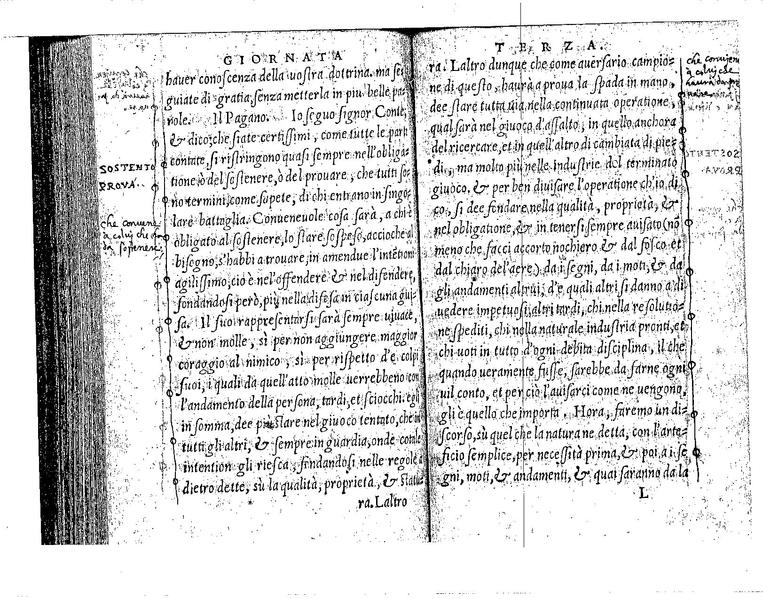 GIORNATA
hauer conoscenza della uostra dottrina. ma se
guiate di gratia, senza metterla in piu belle pa-
role. Il Pagano. Io seguo signor Conte,
& dico, che siate certissimi, come tutte le parti
contate, si ristringono quasi sempre nell'obliga-
tione, ò del sostenere, ò del prouare, che tutti so-
no termini, come sapete, di chi entrano in singo-
lare battaglia. Conueneuole cosa sarà, a chi è
obligato al sostenere, lo stare sospeso, accioche al
bisogno, s'habbi a trouare, in amendue l'intentioni
agilissimo, ciò è nel'offendere & nel difendere,
fondandosi però, piu nella difesa in ciascuna gui-
sa. Il suo rappresentarsi sarà sempre uiuace,
& non molle, sì per non aggiungere maggior
coraggio al nimico, sì per rispetto d'e colpi
suoi, i quali da quell'atto molle uerrebbeno con
l'andamento della persona, tardi, et sciocchi. egli
in somma, dee più stare nel giuoco tentato, che in
tutti gli altri, & sempre in guardia, onde cotale
intention gli riesca, fondandosi nelle regole a
dietro dette, sù la qualità, proprietà, & statu
ra. Laltro
SOSTENTO
PROVA.
che conuiene
à colui che
da sostenere
TERZA.
ra. Laltro dunque che come auersario campio-
ne di questo, haurà a proua la spada in mano,
dee stare tutta uia nella continuata operatione,
qual sarà nel giuoco d'assalto, in quello anchora
del ricercare, et in quell'altro di cambiata di pie-
di, ma molto più nelle industrie del terminato
giuoco. & per ben diuisare l'operatione ch'io di
co, si dee fondare nella qualità, proprietà, &
nel obligatione, & in tenersi sempre auisato (nō
meno che facci accorto nochiero & dal fosco et
dal chiaro del'aere) da i segni, da i moti, & da
gli andamenti altrui, d'e quali altri si danno a di
uedere impetuosi, altri tardi, chi nella resolutio-
ne spediti, chi nella naturale industria pronti, et
chi uoti in tutto d'ogni debita disciplina, il che
quando ueramente fusse, sarebbe da farne ogni
uil conto, et per ciò l'auisarci come ne uengono,
gli è quello che importa. Hora, faremo un di-
scorso, sù quel che la natura ne detta, con l'arte-
ficio semplice, per necessità prima, & poi, a i se
gni, moti, & andamenti, & quai saranno da la
L
che conuiene
à colui che